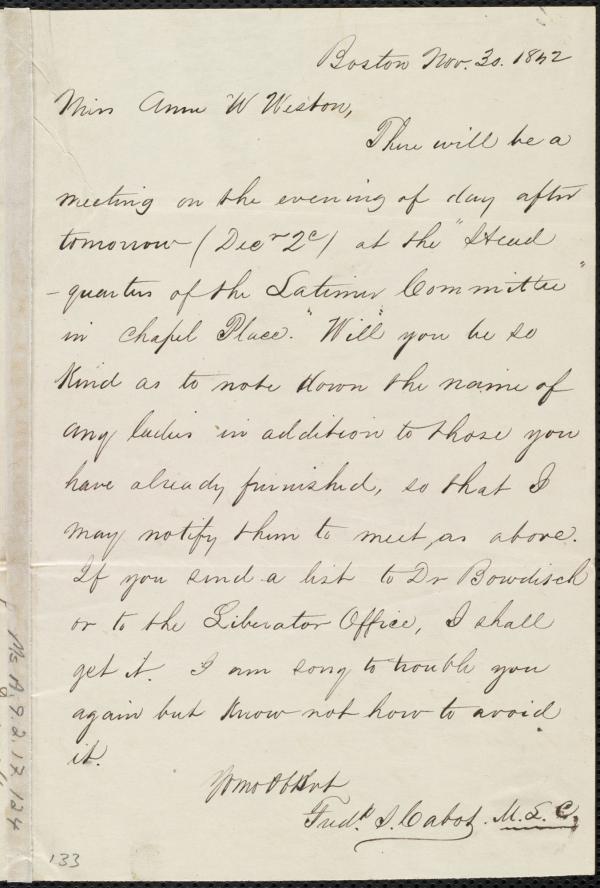 Boston Nov. 30. 1842
Miss Anne W Weston,
There will be a
meeting on the evening of day after
tomorrow (Decr 2d) at the "Head
-quarters of the Latimer Committee"
in Chapel Place." Will you be so
kind as to note down the name of
any ladies in addition to those you
have already furnished, so that I
may notify them to meet, as above.
If you send a list to Dr Bowditch
or to the Liberator Office, I shall
get it. I am sorry to trouble you
again but know not how to avoid
it.
Fredk. S. Cabot. M. L. C.
Ms. A.9.2.17.124
133